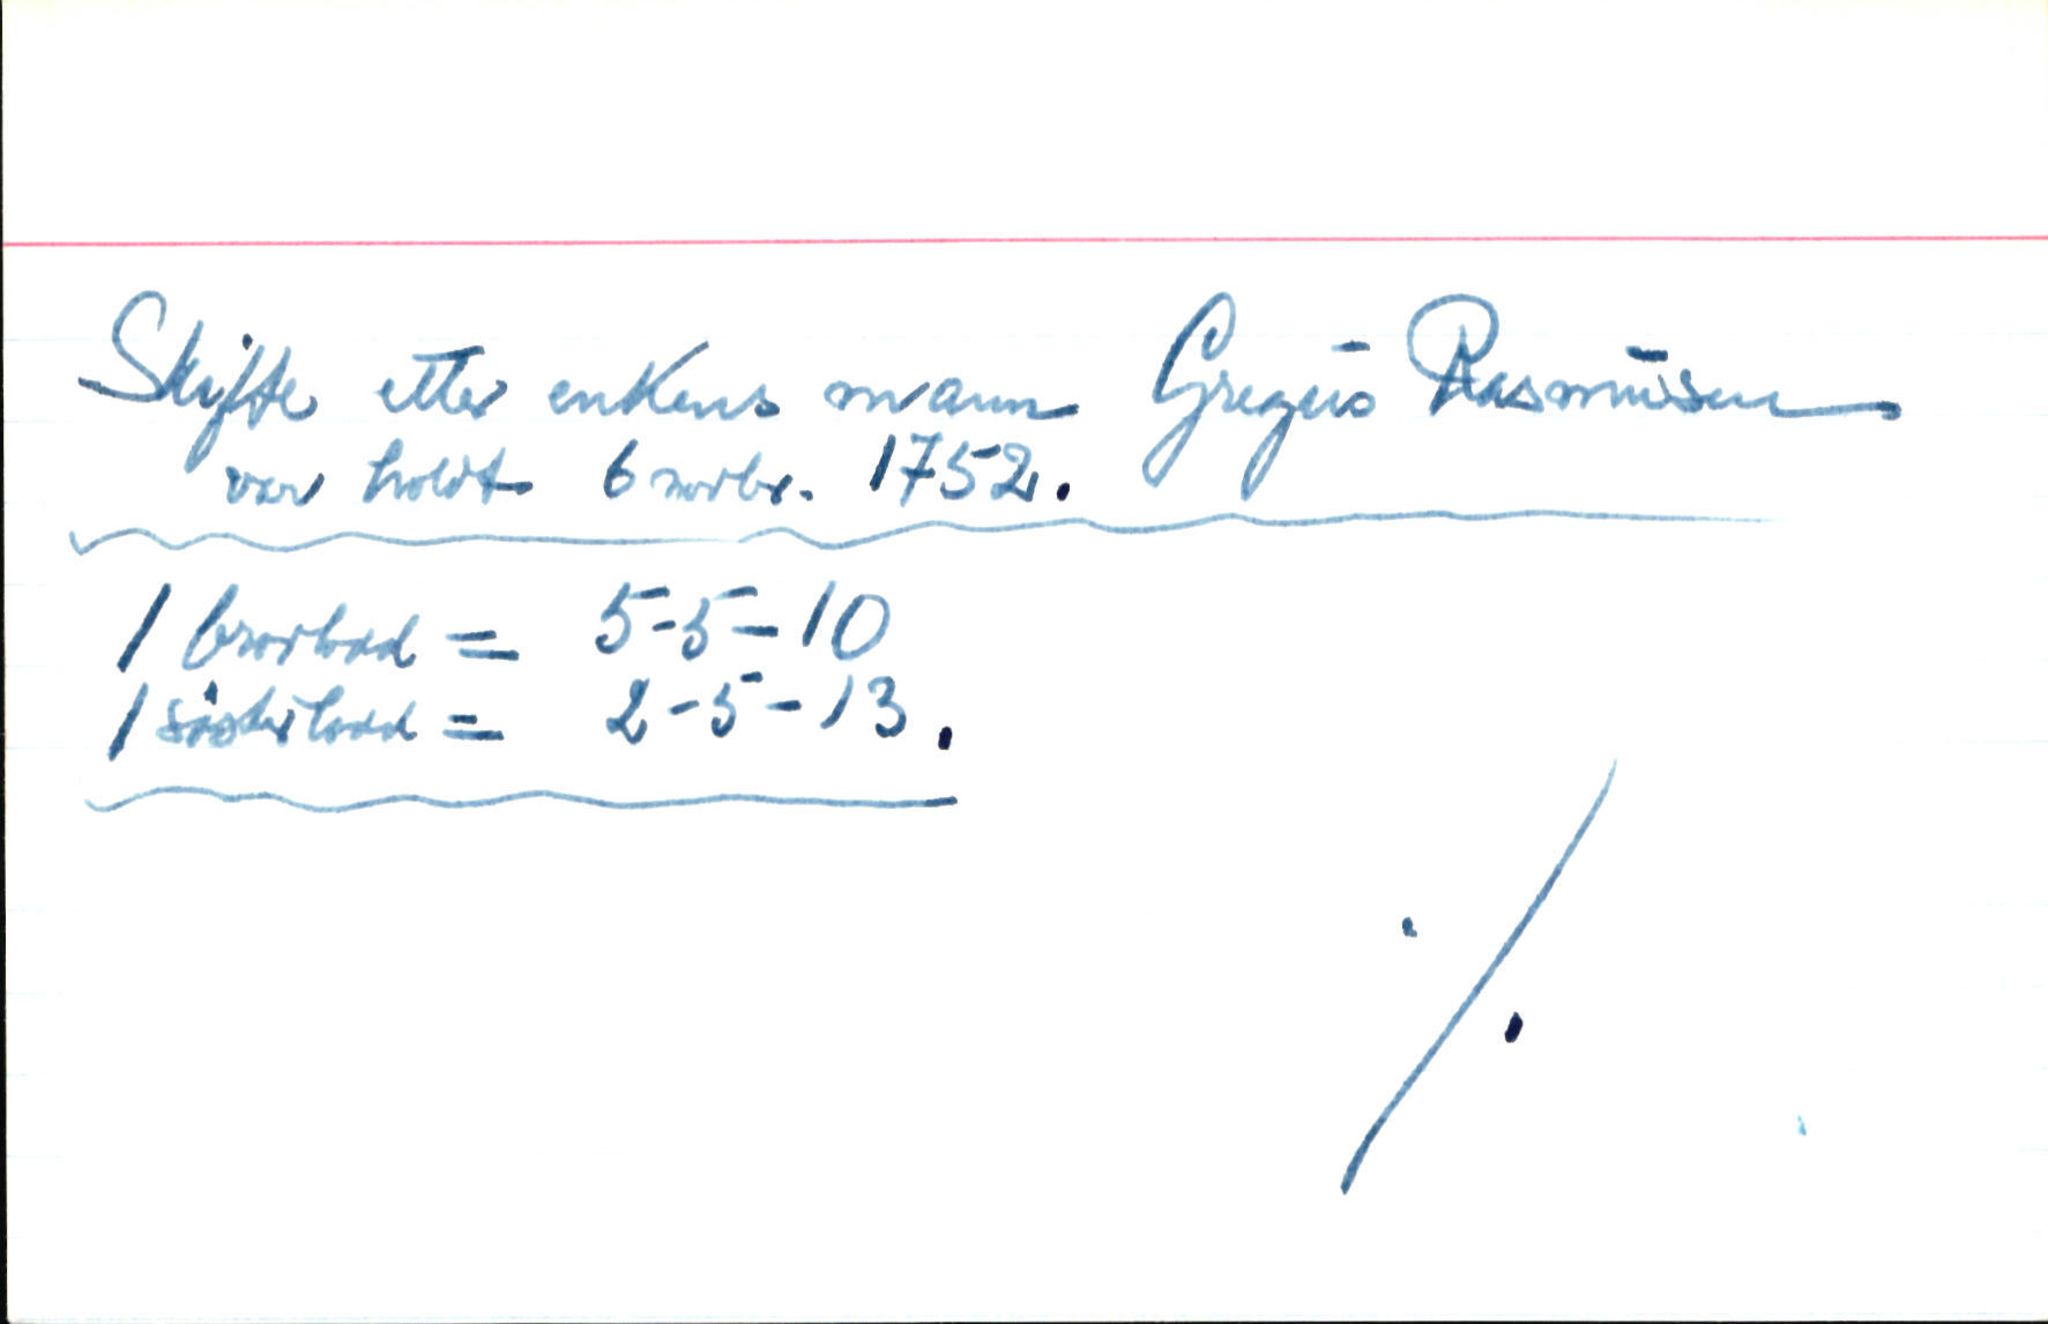 Skifte etter enkens mann Gregūs Rasmūsen
var holdt 6 novbr. 1752.
1 brorlodd = 5-5-10
1 søsterlodd = 2-5-13.